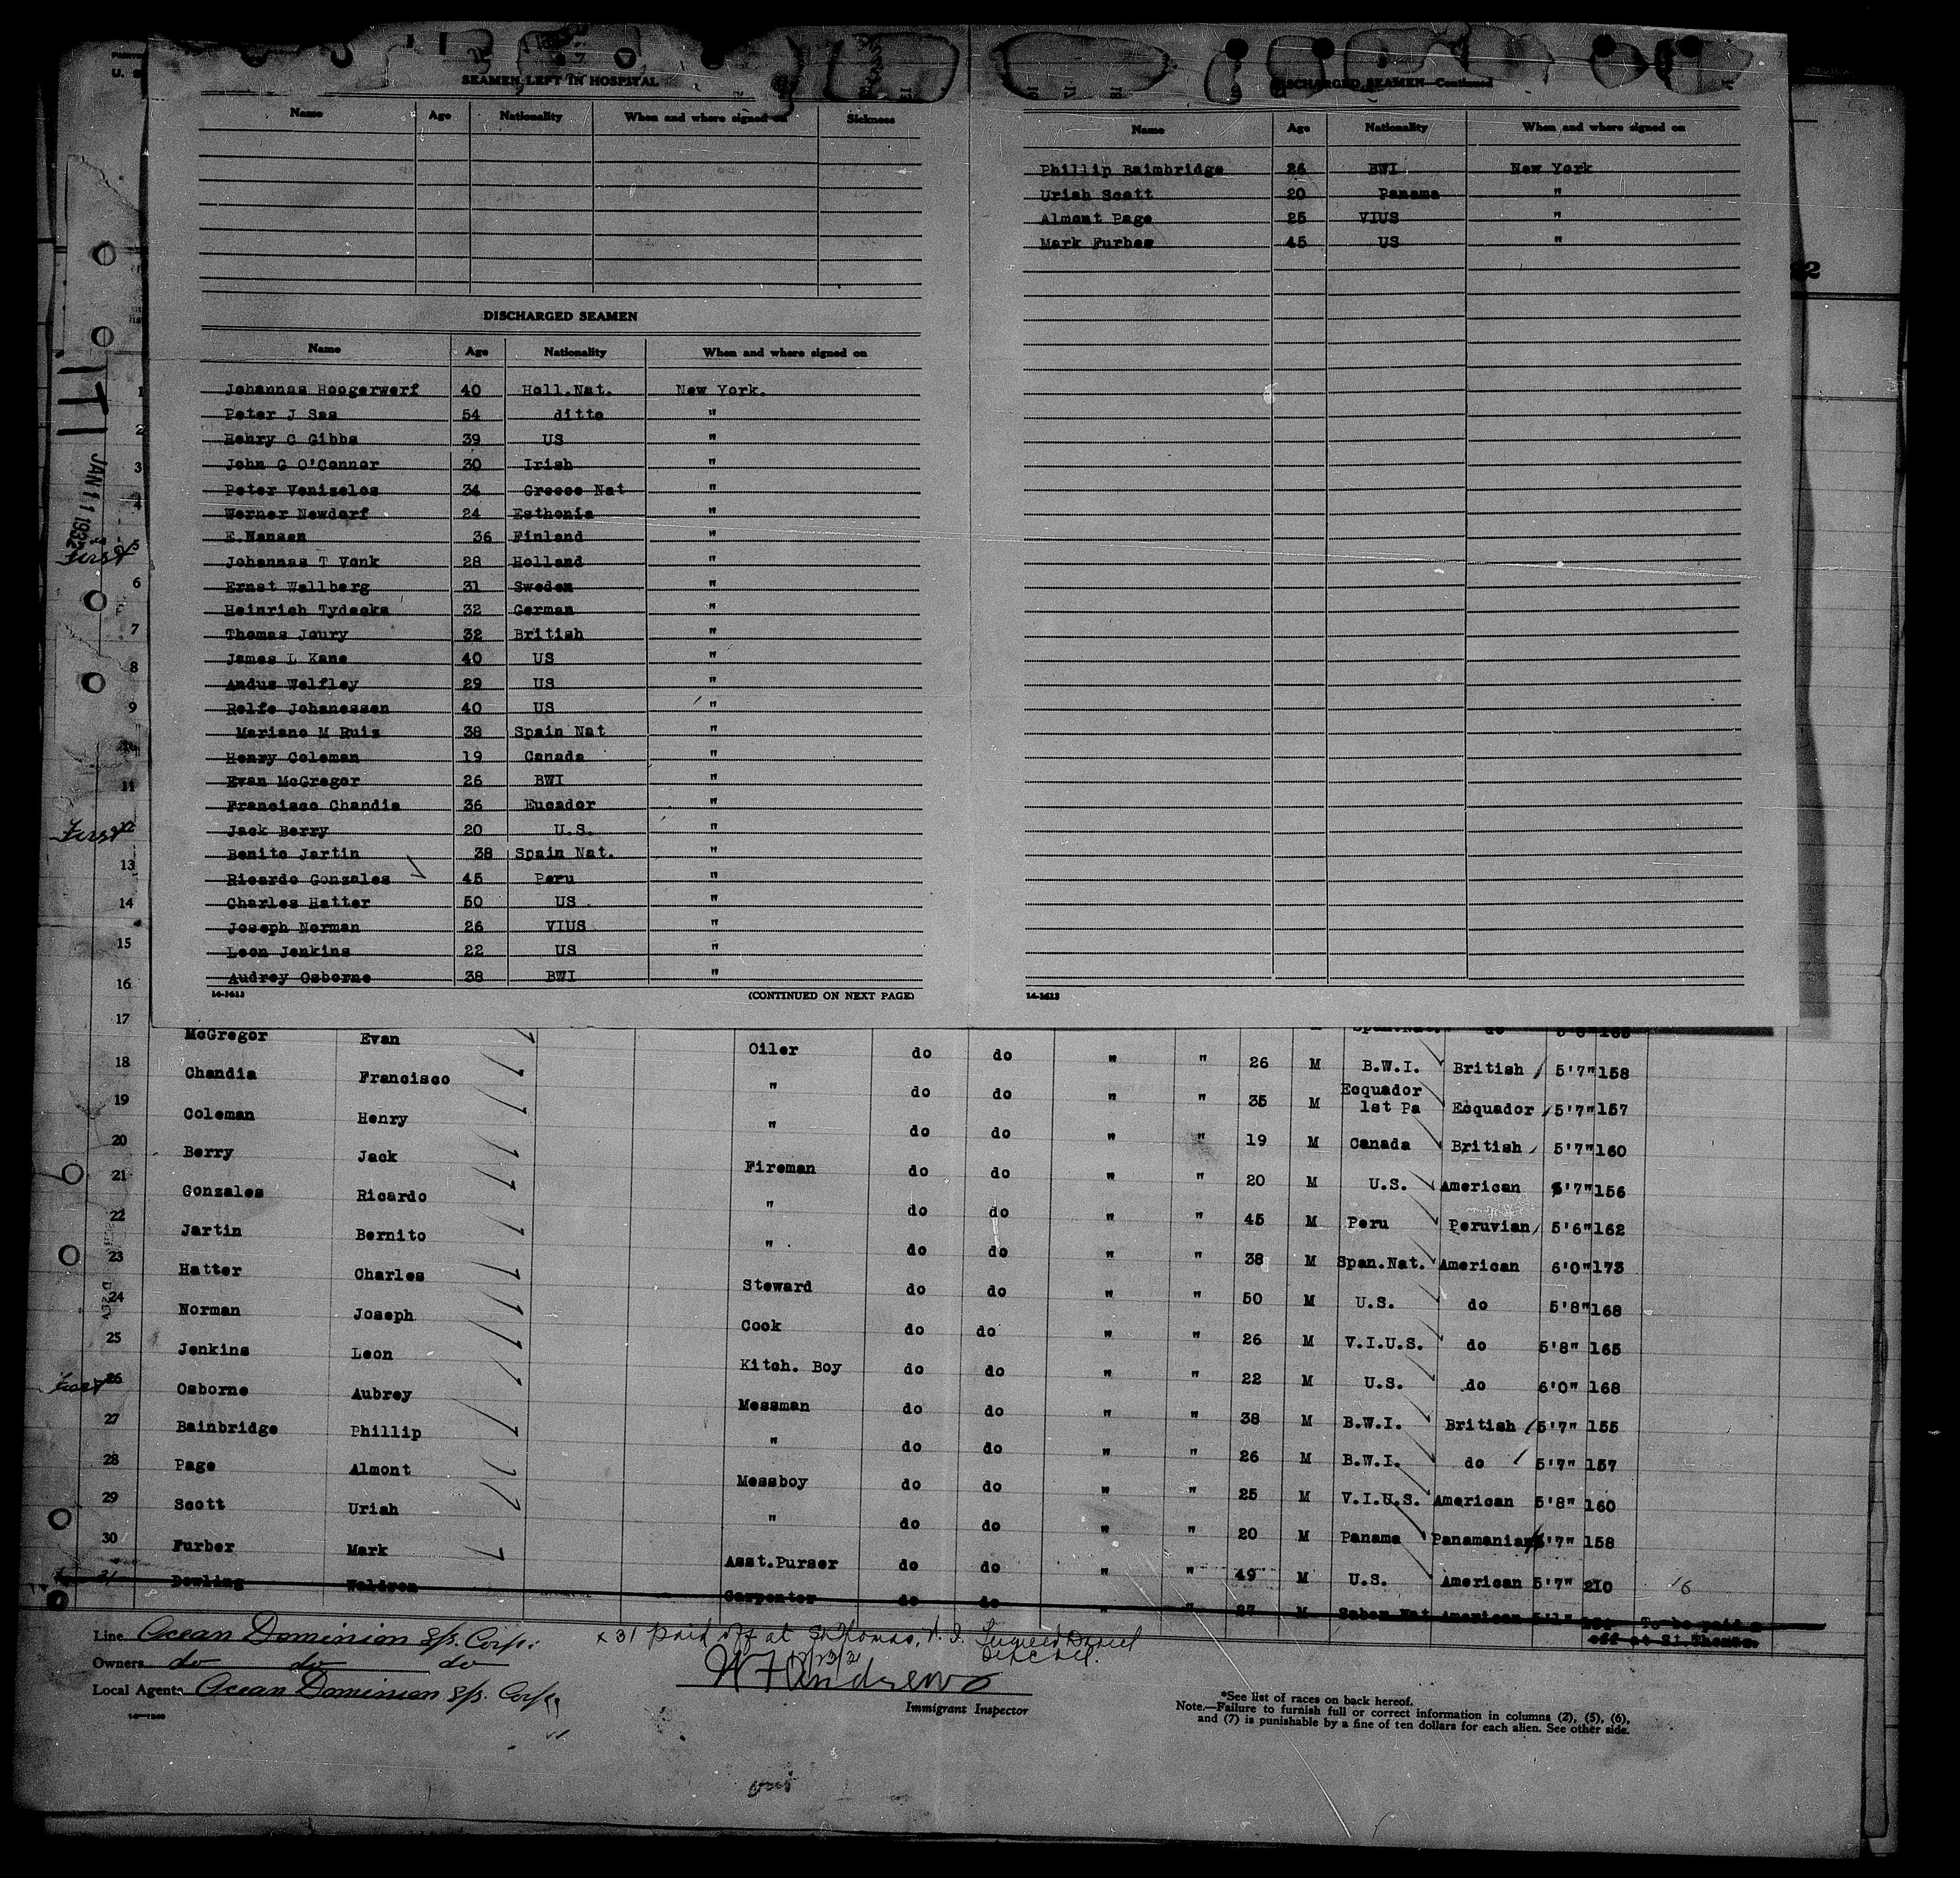 SEAMEN LEFT IN HOSPITAL
Name Age Nationality When and where signed on Sickness
DISCHARGED SEAMEN
Name Age Nationality When and where signed on
Johannas Hoogerwerf 40 Holl.Nat. New York.
Peter J Sas 54 ditto "
Henry C Gibbs 39 US "
John G O'Connor 30 Irish "
Peter Venizelos 34 Greece Nat "
Werner Newdorf 24 Esthonia "
E.Nansen 36 Finland "
Johannas T Vonk 28 Holland "
Ernst Wallberg 31 Sweden "
Heinrich Tydecks 32 German "
Thomas Joury 32 British "
James L Kane 40 US "
Andus Welfley 29 US "
Rolfe Johanessen 40 US "
Mariano M Ruiz 38 Spain Nat "
Henry Coleman 19 Canada "
Evan McGregor 26 BWI "
Francisco Chandia 36 Eucador "
Jack Berry 20 U.S. "
Benito Jartin 38 Spain Nat. "
Ricardo Gonzales 45 Peru "
Charles Hatter 50 US "
Joseph Norman 26 VIUS "
Leon Jenkins 22 US "
Audrey Osborne 38 BWI "
14-1613 (CONTINUED ON NEXT PAGE)
DISCHARGED SEAMEN—Continued
Name Age Nationality When and where signed on
Phillip Baimbridge 26 BWI New York
Uriah Scott 20 Panama "
Almont Page 25 VIUS "
Mark Furber 45 US "
14-1613
JAN 11 1932
First
First
First
1
2
3
4
5
6
7
8
9
10
11
12
13
14
15
16
17 McGregor Evan Oiler do do " " 26 M B.W.I. British 5'7" 158
18 Chandia Francisco " do do " " 35 M Ecquador 1st Pa Ecquador 5'7" 157
19 Coleman Henry " do do " " 19 M Canada British 5'7" 160
20 Berry Jack Fireman do do " " 20 M U.S. American 5'7" 156
21 Gonzales Ricardo " do do " " 45 M Peru Peruvian 5'6" 162
22 Jartin Bernito " do do " " 38 M Span.Nat. American 6'0" 173
23 Hatter Charles Steward do do " " 50 M U.S. do 5'8" 168
24 Norman Joseph Cook do do " " 26 M V.I.U.S. do 5'8" 165
25 Jenkins Leon Kitch. Boy do do " " 22 M U.S. do 6'0" 168
26 Osborne Aubrey Messman do do " " 38 M B.W.I. British 5'7" 155
27 Bainbridge Phillip " do do " " 26 M B.W.I. do 5'7" 157
28 Page Almont Messboy do do " " 25 M V.I.U.S. American 5'8" 160
29 Scott Uriah " do do " " 20 M Panama Panamanian 5'7" 158
30 Furber Mark Asst.Purser do do " " 49 M U.S. American 5'7" 210 16
31 Dowling Waldron Carpenter do do " " 27 M Saben Nat American To be paid
off at St.Thomas.
Line Ocean Dominion S/s. Corp.
x 31 paid off at St Thomas, V.I.
Owners do do do
Local Agents Ocean Dominion S/s. Corp.
W F Andrews
Immigrant Inspector
*See list of races on back hereof.
Note.—Failure to furnish full or correct information in columns (2), (5), (6),
and (7) is punishable by a fine of ten dollars for each alien. See other side.